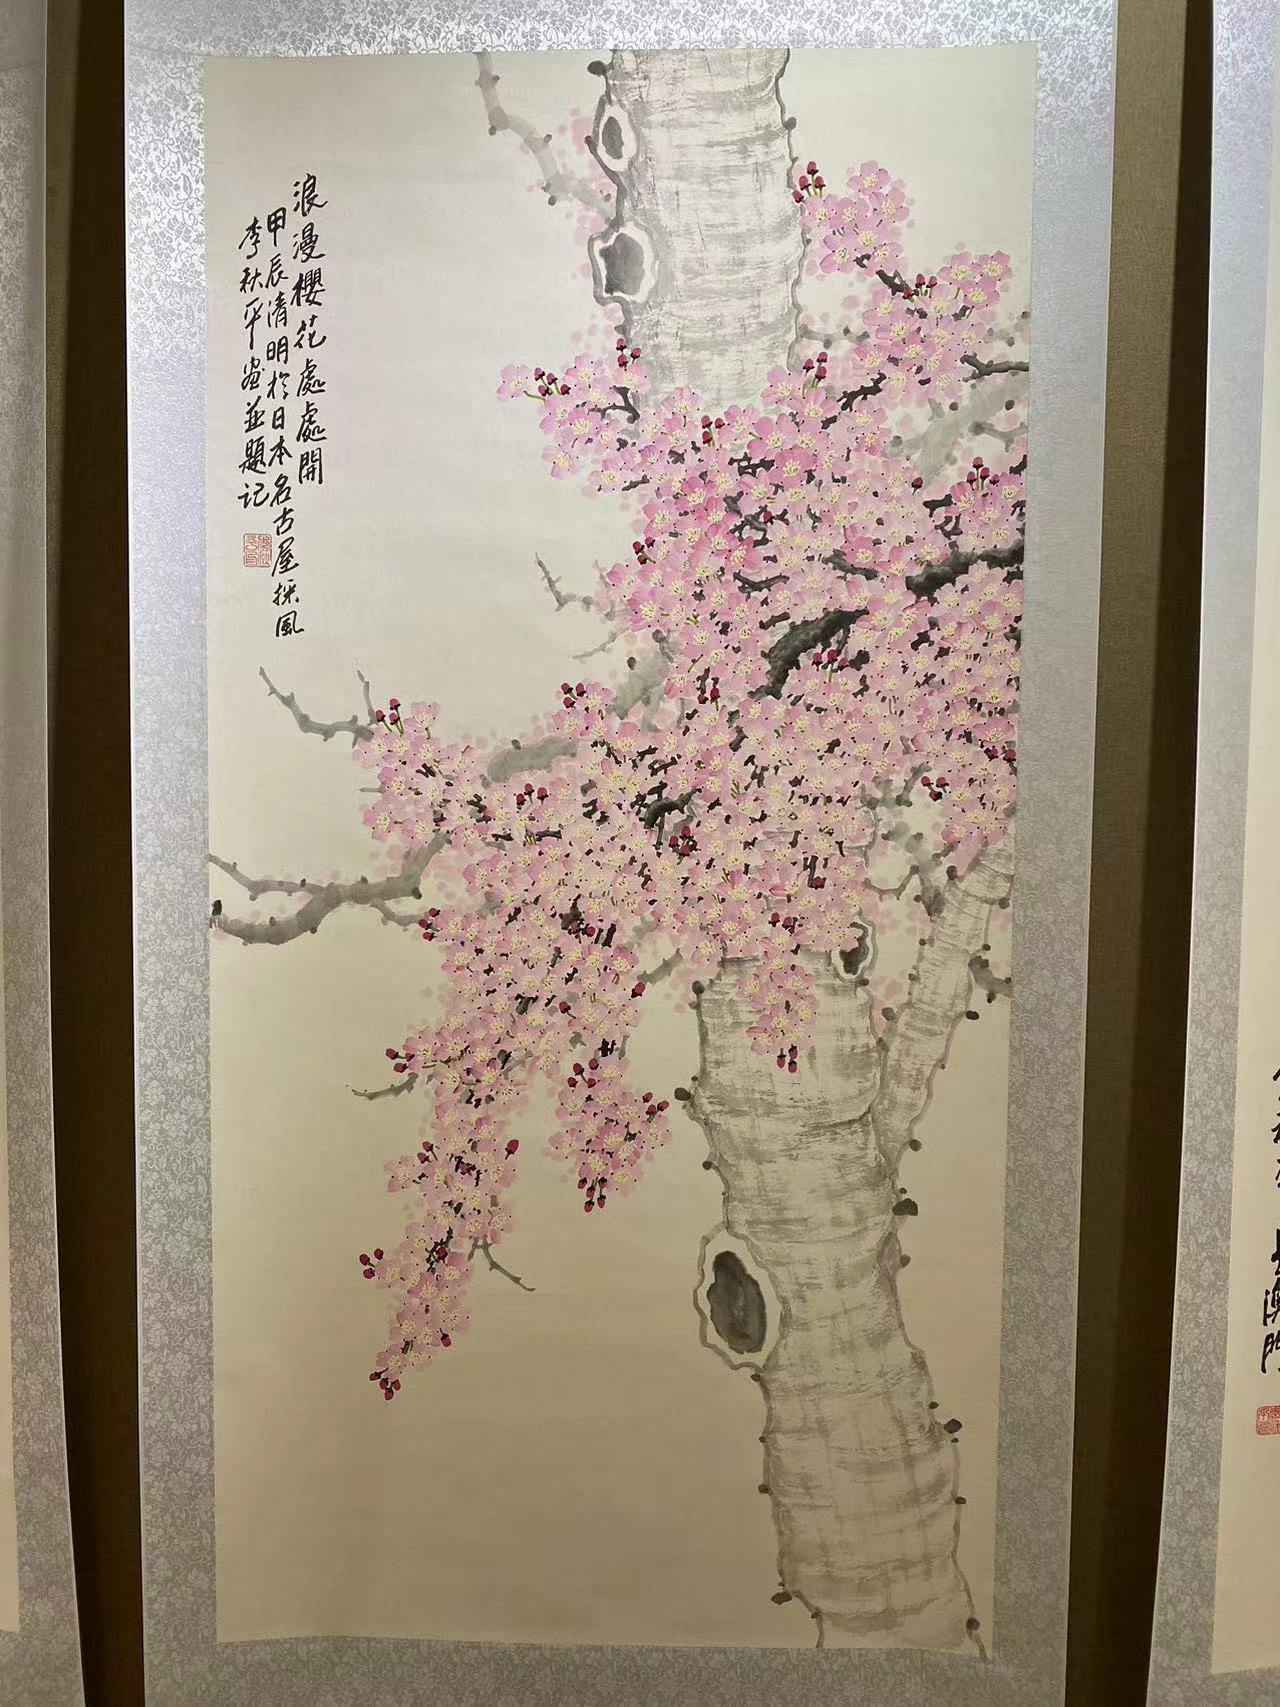 浪漫櫻花處處開
甲辰清明於日本名古屋採風
李秋平畫並題记
澳門